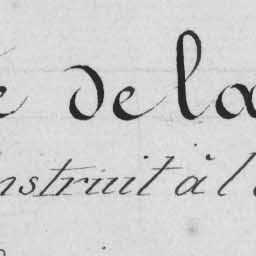 de la
nstruit à l